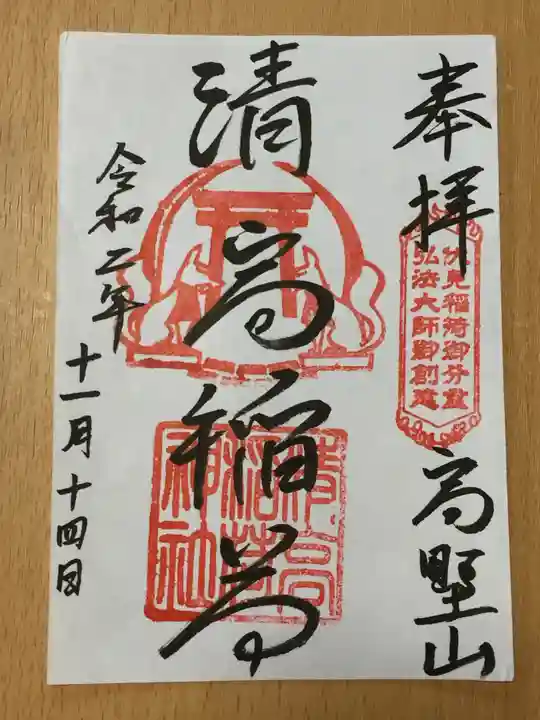 奉拝
伏見稲荷御分霊
弘法大師御創建
高野山
清高稲荷
清高稲荷神社
令和二年
十一月十四日